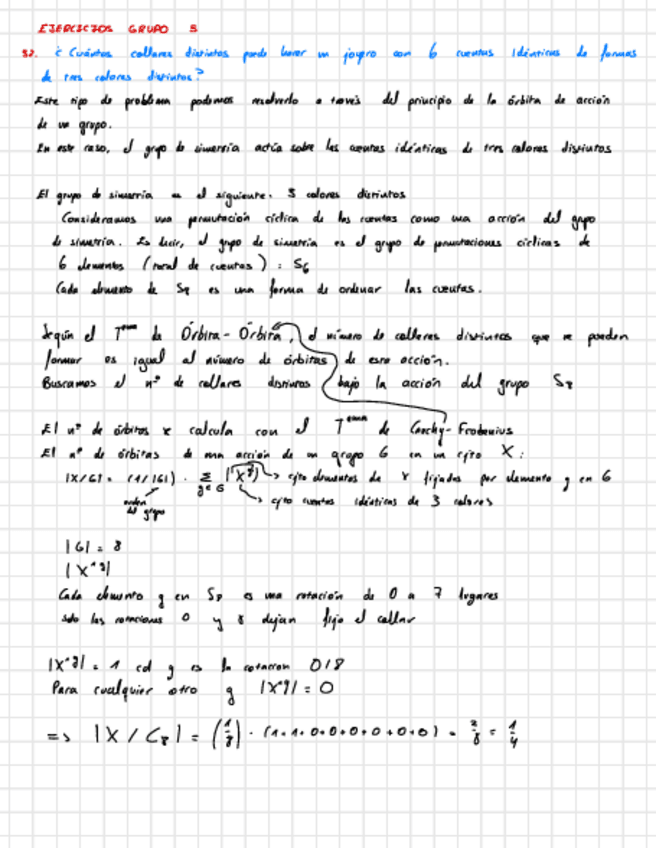 EJERCICIOS GRUPO 5
52. ¿Cuántos collares distintos puede hacer un joyero con 6 cuentas idénticas de formas
de tres colores distintos?
Este tipo de problema podemos resolverlo a través del principio de la órbita de acción
de un grupo.
En este caso, el grupo de simetría actúa sobre las cuentas idénticas de tres colores distintos
El grupo de simetría es el siguiente. 3 colores distintos
Consideramos una permutación cíclica de las cuentas como una acción del grupo
de simetría. Es decir, el grupo de simetría es el grupo de permutaciones cíclicas de
6 elementos (total de cuentas) : S6
Cada elemento de S8 es una forma de ordenar las cuentas.
Según el Tema de Órbita - Órbita, el número de collares distintos que se pueden
formar es igual al número de órbitas de esta acción.
Buscamos el nº de collares distintos bajo la acción del grupo S8
El nº de órbitas se calcula con el Tema de Cauchy-Frobenius
El nº de órbitas de una acción de un grupo G en un cjto X:
|X/G| = (1/|G|) · Σ g∈G |X^g| → cjto elementos de X fijados por elemento g en G
orden del grupo
→ cjto cuentas idénticas de 3 colores
|G| = 8
|X^g|
Cada elemento g en S8 es una rotación de 0 a 7 lugares
solo las rotaciones 0 y 8 dejan fijo el collar
|X^g| = 1 cd g es la rotacion 0/8
Para cualquier otro g |X^g| = 0
=> |X / C8| = (1/8) · (1+1+0+0+0+0+0+0) = 2/8 = 1/4